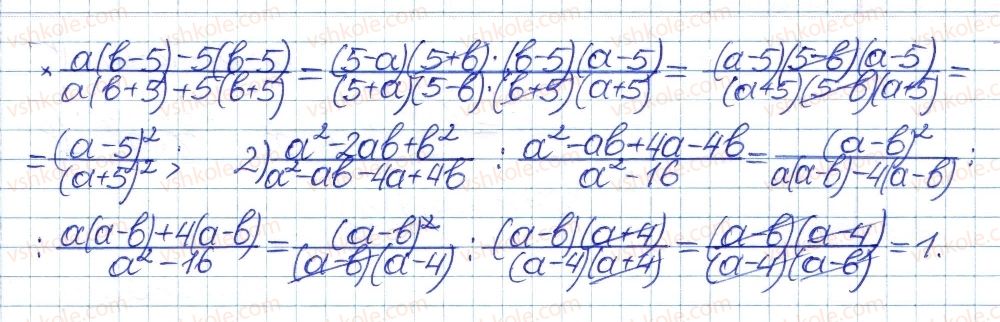 × a(b-5)-5(b-5) / a(b+5)+5(b+5) = (5-a)(5+b)·(b-5)(a-5) / (5+a)(5-b)·(b+5)(a+5) = (a-5)(5-b)(a-5) / (a+5)(5-b)(a+5) =
= (a-5)² / (a+5)² ; 2) a²-2ab+b² / a²-ab-4a+4b : a²-ab+4a-4b / a²-16 = (a-b)² / a(a-b)-4(a-b) :
: a(a-b)+4(a-b) / a²-16 = (a-b)² / (a-b)(a-4) : (a-b)(a+4) / (a-4)(a+4) = (a-b)(a-4) / (a-4)(a-b) = 1.